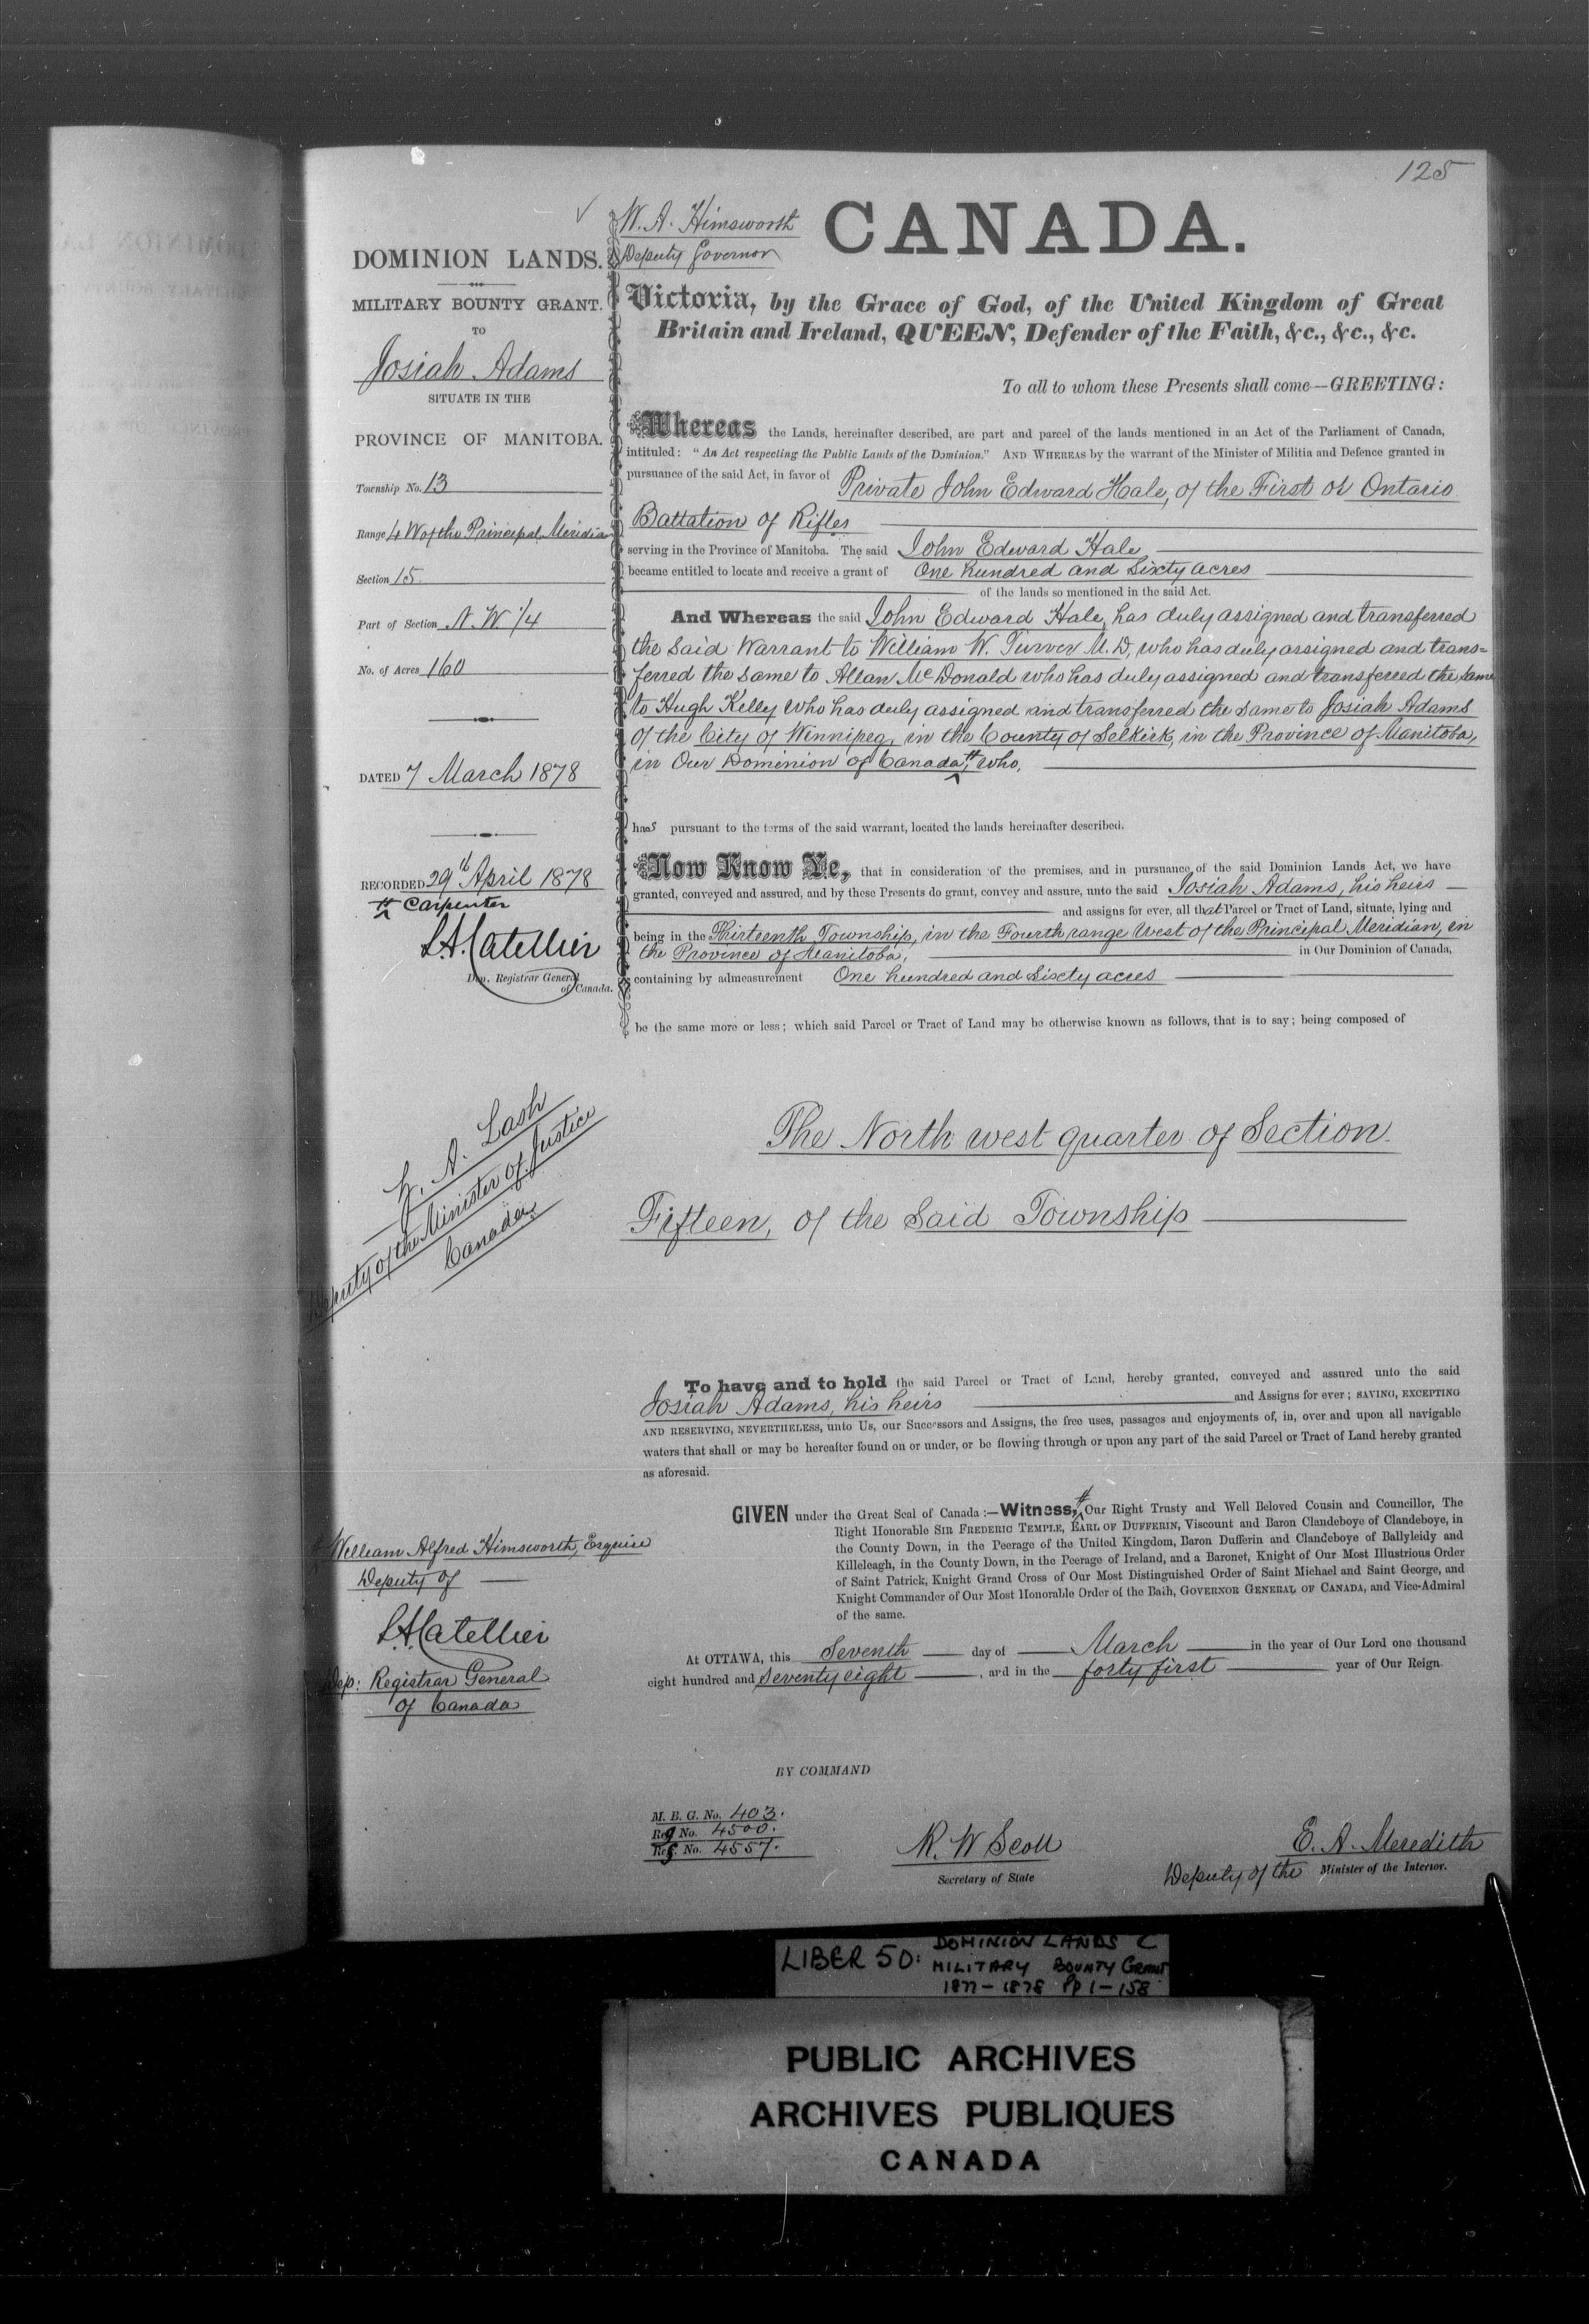 125
W. A. Himsworth
Deputy Governor
CANADA.
DOMINION LANDS.
MILITARY BOUNTY GRANT.
TO
Josiah Adams
SITUATE IN THE
PROVINCE OF MANITOBA.
Township No. 13
Range 4 W of the Principal Meridian
Section 15.
Part of Section N. W. 1/4
No. of Acres 160
DATED 7 March 1878
RECORDED 29th April 1878
Carpenter
L.A. Catellier
Dep. Registrar General
of Canada.
Victoria, by the Grace of God, of the United Kingdom of Great
Britain and Ireland, QUEEN, Defender of the Faith, &c., &c., &c.
To all to whom these Presents shall come—GREETING:
Whereas the Lands, hereinafter described, are part and parcel of the lands mentioned in an Act of the Parliament of Canada,
intituled: "An Act respecting the Public Lands of the Dominion." AND WHEREAS by the warrant of the Minister of Militia and Defence granted in
pursuance of the said Act, in favor of Private John Edward Hale, of the First or Ontario
Battation of Rifles
serving in the Province of Manitoba. The said John Edward Hale
became entitled to locate and receive a grant of One hundred and Sixty acres
of the lands so mentioned in the said Act.
And Whereas the said John Edward Hale, has duly assigned and transferred
the said Warrant to William W. Turver M.D, who has duly assigned and trans=
ferred the same to Allan McDonald who has duly assigned and transferred the same
to Hugh Kelly who has duly assigned and transferred the same to Josiah Adams
of the City of Winnipeg, in the County of Selkirk, in the Province of Manitoba,
in Our Dominion of Canada, # who,
has pursuant to the terms of the said warrant, located the lands hereinafter described.
Now Know Ye, that in consideration of the premises, and in pursuance of the said Dominion Lands Act, we have
granted, conveyed and assured, and by these Presents do grant, convey and assure, unto the said Josiah Adams, his heirs
and assigns for ever, all that Parcel or Tract of Land, situate, lying and
being in the Thirteenth Township, in the Fourth range West of the Principal Meridian, in
the Province of Manitoba, in Our Dominion of Canada,
containing by admeasurement One hundred and Sixty acres
be the same more or less; which said Parcel or Tract of Land may be otherwise known as follows, that is to say; being composed of
Z. A. Lash
Deputy of the Minister of Justice
Canada
The North west quarter of Section
Fifteen, of the Said Township
To have and to hold the said Parcel or Tract of Land, hereby granted, conveyed and assured unto the said
Josiah Adams, his heirs and Assigns for ever; SAVING, EXCEPTING
AND RESERVING, NEVERTHELESS, unto Us, our Successors and Assigns, the free uses, passages and enjoyments of, in, over and upon all navigable
waters that shall or may be hereafter found on or under, or be flowing through or upon any part of the said Parcel or Tract of Land hereby granted
as aforesaid.
GIVEN under the Great Seal of Canada:—Witness, # Our Right Trusty and Well Beloved Cousin and Councillor, The
Right Honorable SIR FREDERIC TEMPLE, EARL OF DUFFERIN, Viscount and Baron Clandeboye of Clandeboye, in
the County Down, in the Peerage of the United Kingdom, Baron Dufferin and Clandeboye of Ballyleidy and
Killeleagh, in the County Down, in the Peerage of Ireland, and a Baronet, Knight of Our Most Illustrious Order
of Saint Patrick, Knight Grand Cross of Our Most Distinguished Order of Saint Michael and Saint George, and
Knight Commander of Our Most Honorable Order of the Bath, GOVERNOR GENERAL OF CANADA, and Vice-Admiral
of the same.
# William Alfred Himsworth, Esquire
Deputy of
L.A. Catellier
Dep: Registrar General
of Canada
At OTTAWA, this Seventh day of March in the year of Our Lord one thousand
eight hundred and Seventy eight, and in the forty first year of Our Reign.
BY COMMAND
M. B. G. No. 403.
Reg No. 4500.
Ref. No. 4557.
R. W Scott
Secretary of State
E. A. Meredith
Deputy of the Minister of the Interior.
LIBER 50: DOMINION LANDS C
MILITARY BOUNTY GRANT
1877-1878 Pp 1-158
PUBLIC ARCHIVES
ARCHIVES PUBLIQUES
CANADA